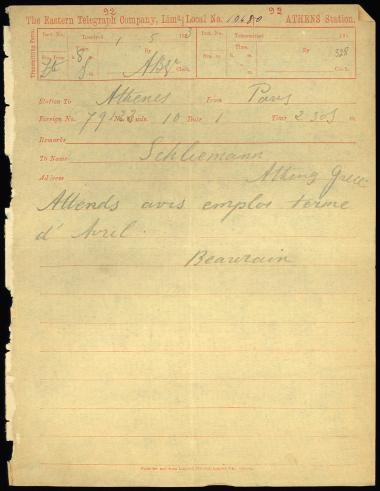 92 92
The Eastern Telegraph Company, Limd. Local No. 10680 ATHENS Station.
Transmitting Form.
Inst. No. Received 1 5 188 3 Inst. No. Transmitted 188
By Time. By 328
S. m. Clerk. S. m. Clerk.
Station To Athenes From Paris
Foreign No. Words. 10 Date 1 Time 2 30 S m.
Remarks
To Name Schliemann
Address Athens Greece
Attends avis emploi terme
d'Avril.
Beaurain